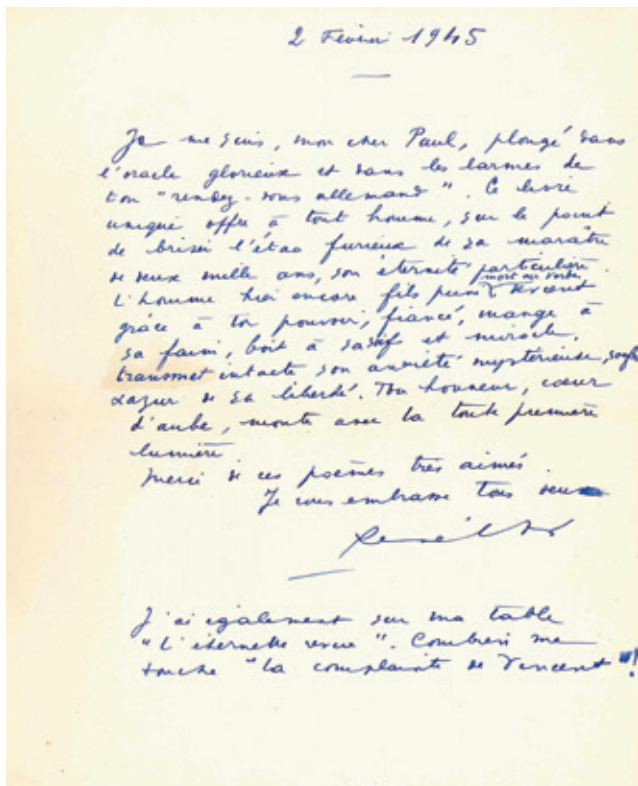 2 Février 1945
Je me suis, mon cher Paul, plongé dans
l'oracle glorieux et dans les larmes de
ton "rendez-vous allemand". Ce livre
unique offre à tout homme, sur le point
de briser l'étau furieux de sa marâtre
de deux mille ans, son éternité particulière.
L'homme hier encore fils puni devient
grâce à ton pouvoir, fiancé, mange à
sa faim, boit à sa soif et miracle,
transmet intacte son anxiété mystérieuse,
de sa liberté. Ton honneur, cœur
d'aube, monte avec la toute première
lumière
Merci de ces poèmes très aimés.
Je vous embrasse tous deux
J'ai également sur ma table
"L'éternelle revue". Combien me
touche "la complainte de Vincent"!